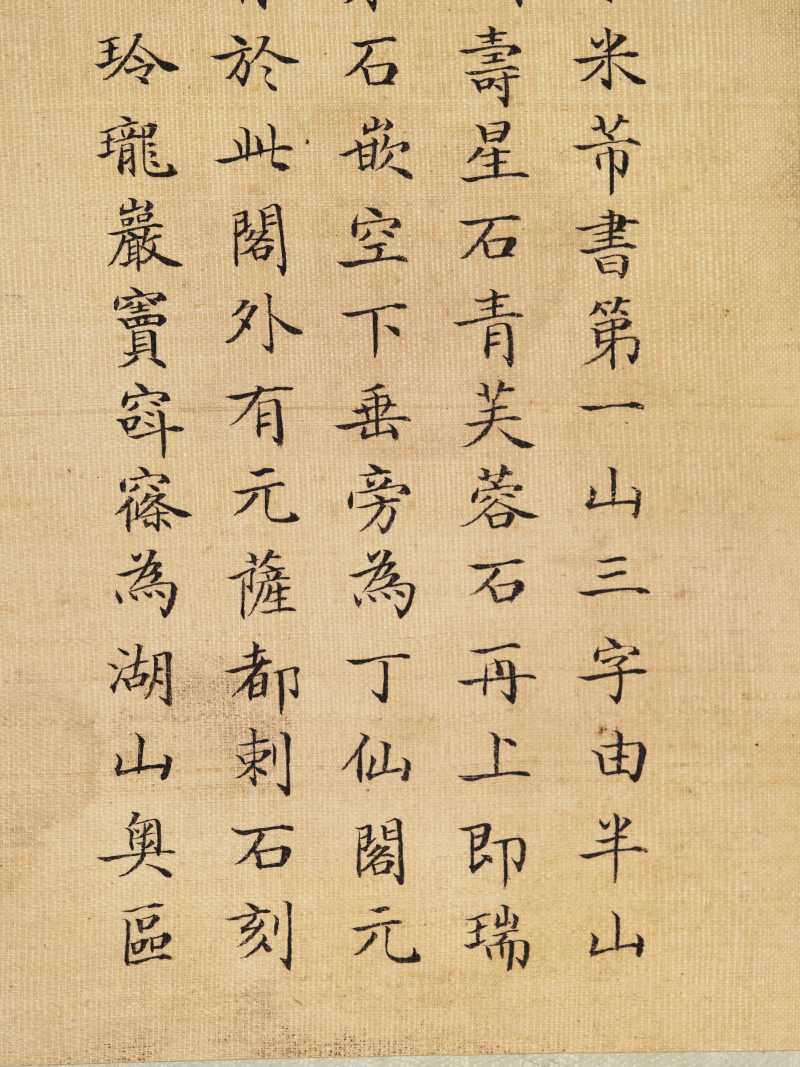 米芾書第一山三字由半山
壽星石青芙蓉石再上即瑞
石嵌空下垂旁為丁仙閣元
於此閣外有元薩都剌石刻
玲瓏巖竇窲為湖山奧區